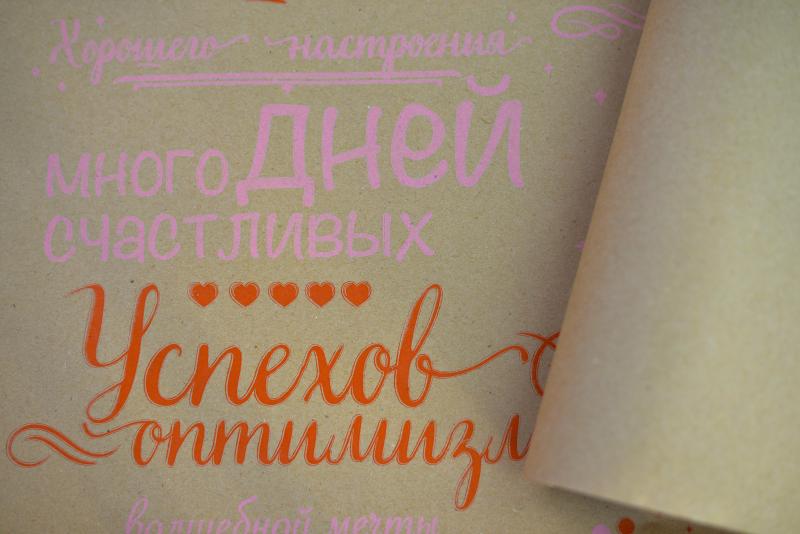 Хорошего настроения
много дней
счастливых
Успехов
оптимизм
волшебной мечты